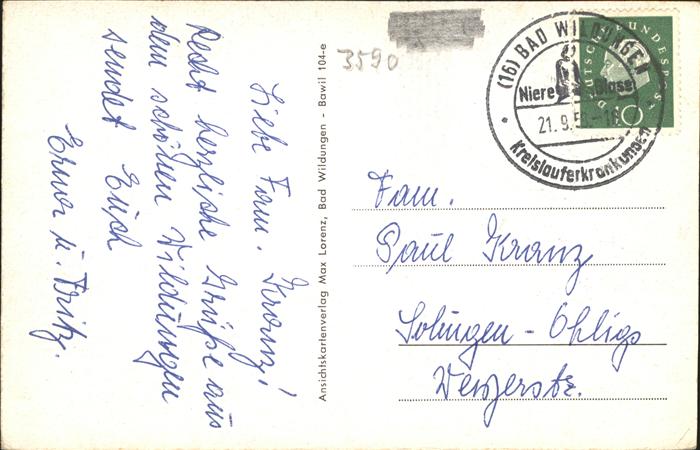 Liebe Fam. Kranz!
Recht herzliche Grüße aus
dem schönen Wildungen
sendet Euch
Erna u. Fritz.
Ansichtskartenverlag Max Lorenz, Bad Wildungen - Bawil 104-e
3590
(16) BAD WILDUNGEN
Niere Blase
21.9.5
Kreislauferkrankungen
DEUTSCHE BUNDESPOST
10
Fam.
Paul Kranz
Solingen-Ohligs